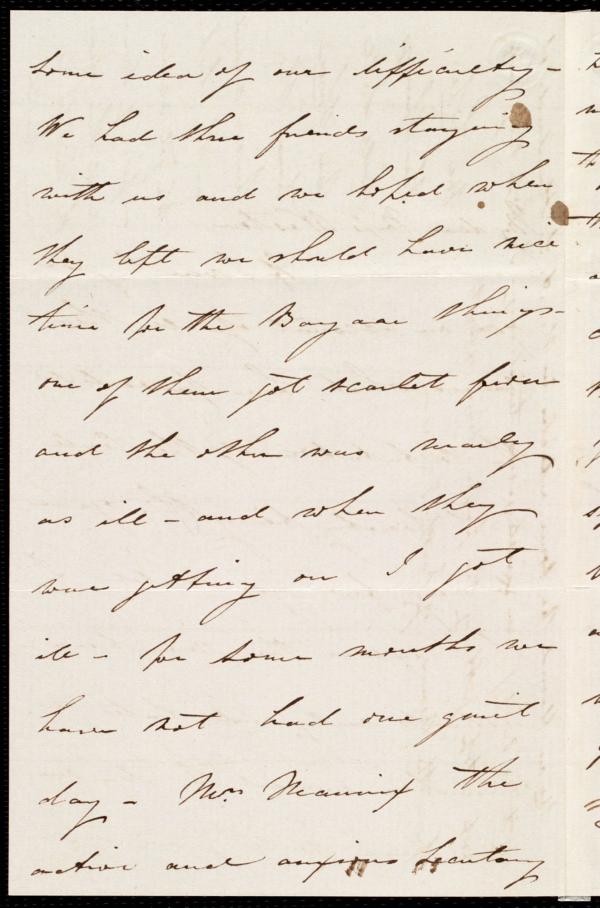 some idea of our difficulty -
We had three friends staying
with us and we hoped when
they left we should have nice
time for the Bazaar things -
one of them got scarlet fever
and the other was nearly
as ill - and when they
was getting on I got
ill - for some months we
have not had one quiet
day - Mrs Mannix the
active and anxious Secretary